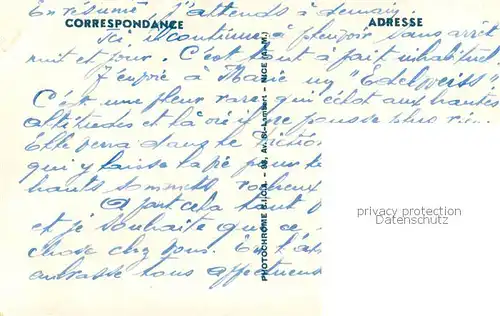 En résumé j'attends à demain.
CORRESPONDANCE
ADRESSE
Ici il continue à pleuvoir sans arrêt
nuit et jour. C'est tout à fait inhabituel
J'envoie à Marie un "Edelweiss"
C'est une fleur rare qui éclot aux hautes
altitudes et là où il ne pousse plus rien.
Elle verra dans le
qu'il y faisse la pour
hauts sommets rocheux
A part cela tout
et je souhaite que ce
chose chez vous. En
embrasse tous affectueus
PHOTOCHROME G.I.O.L.A. - 98, Av. St-Lambert - NICE (A.-M.)
privacy protection
Datenschutz